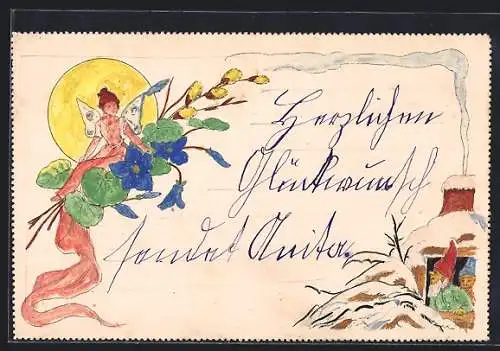 Herzlichen
Glückwunsch
sendet Anita.